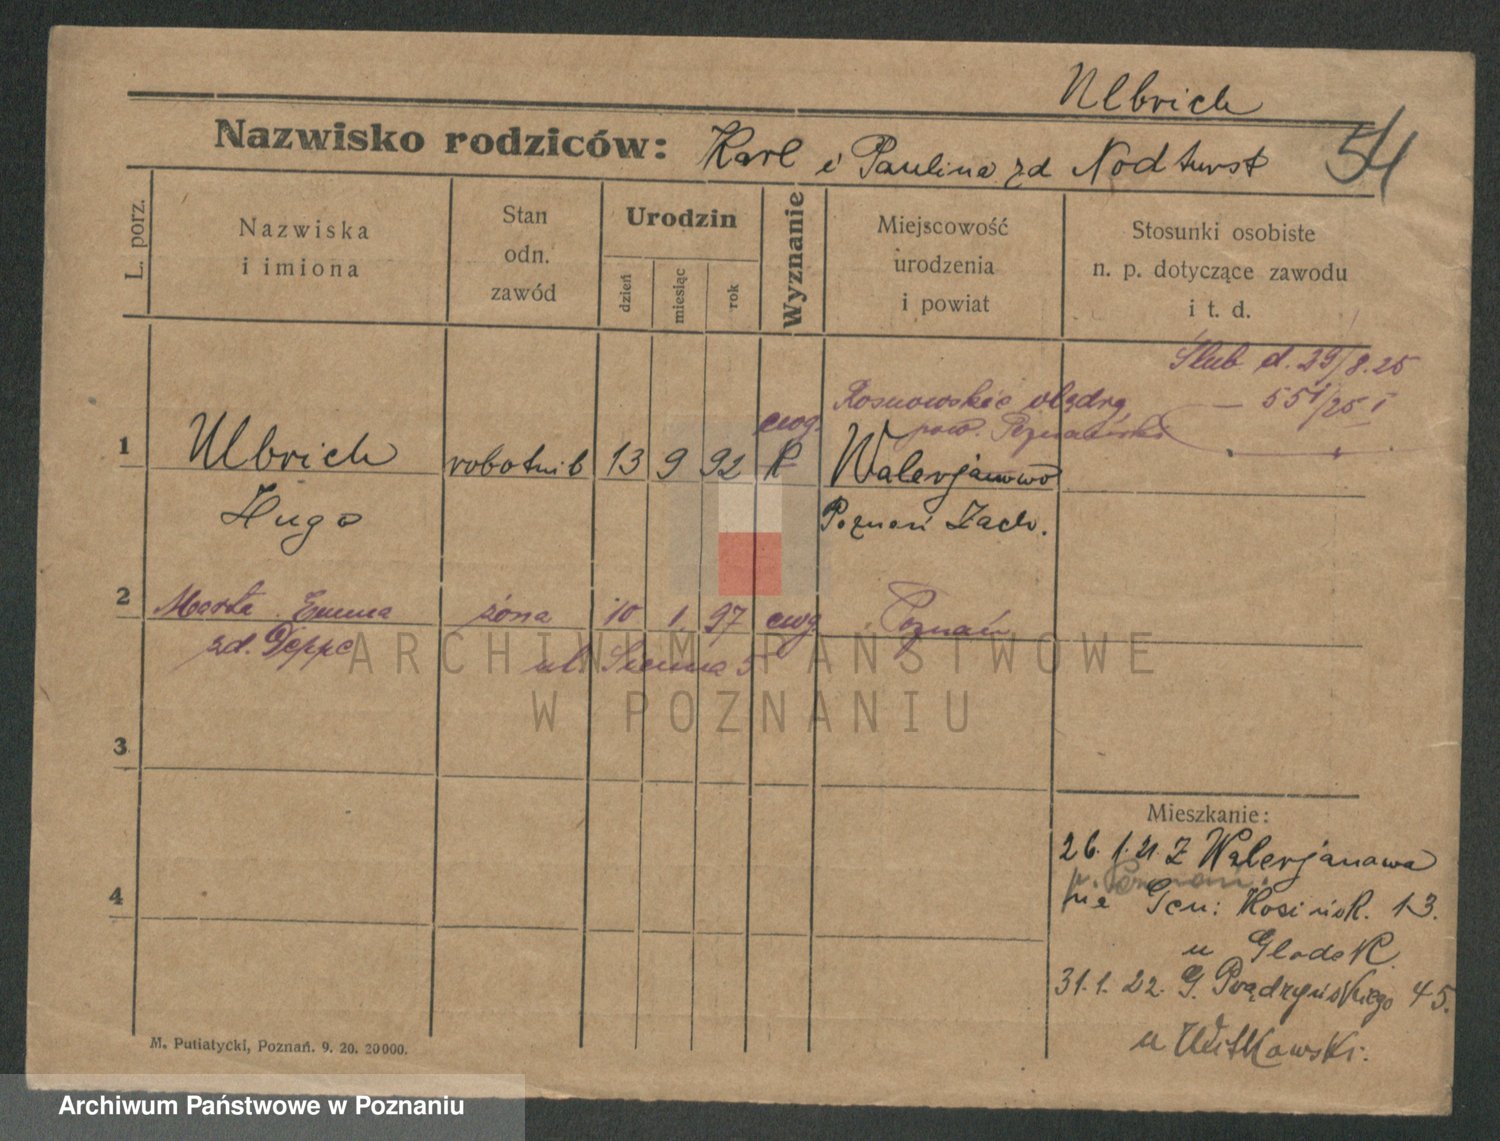 Ulbrich
Nazwisko rodziców: Karl i Paulina zd Nodturst
54
L. porz.
Nazwiska
i imiona
Stan
odn.
zawód
Urodzin
dzień
miesiąc
rok
Wyznanie
Miejscowość
urodzenia
i powiat
Stosunki osobiste
n. p. dotyczące zawodu
i t. d.
Ślub d. 29/8.25
551/25 I
Rosnowskie olędry
ewg. pow. Poznański
1 Ulbrich robotnik 13 9 92 K Walerjanowo
Hugo Poznań Zach.
2 Marta Emma żona 10 1. 97 ewg Poznań
zd. Deppe ul Sienna 5
3
4
Mieszkanie:
26.1.21. Z Walerjanowa
p. Poznań.
na Gen: Kosińsk. 13.
u Glodek
31.1.22. G. Prądzyńskiego 45.
u Witkowski.
M. Putiatycki, Poznań. 9. 20. 20000.
ARCHIWUM PAŃSTWOWE
W POZNANIU
Archiwum Państwowe w Poznaniu